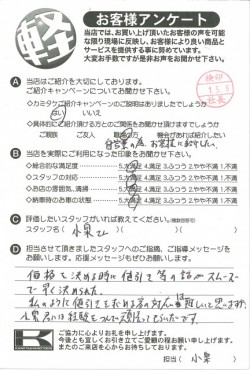 軽
お客様アンケート
当店では、お買い上げ頂いたお客様の声を可能
な限り現場に反映し、お客様により良い商品と
サービスを提供する事に努めています。
大変お手数ですが是非お声をお聞かせ下さい。
検印
店長
A 当店はご紹介を大切にしております。
ご紹介キャンペーンについてお聞かせ下さい。
◇カミタケご紹介キャンペーンのご説明はありましたでしょうか
はい いいえ
◇具体的にご紹介頂ける方とのご関係をお聞き頂けますでしょうか
ご親族 ご友人 職場の方 機会があれば紹介したい
自営業の為、お客様に紹介したい。
B 当店を実際にご利用になった印象をお聞かせ下さい。
◇総合的な満足度 5.大満足 4.満足 3.ふつう 2.やや不満 1.不満
◇スタッフの対応 5.大満足 4.満足 3.ふつう 2.やや不満 1.不満
◇お店の雰囲気、清掃 5.大満足 4.満足 3.ふつう 2.やや不満 1.不満
◇価格 5.大満足 4.満足 3.ふつう 2.やや不満 1.不満
C 評価したいスタッフがいれば教えてください。(複数回答可)
スタッフ名( 小泉さん )
D 担当させて頂きましたスタッフへのご指摘、ご指導メッセージを
お願いします。応援メッセージもぜひお願いします。
価格を決める時に値引き等の話がスムーズ
で早く決められた。
私のように値引きを求める客の対応は難しいと思いますが、
小泉さんには経験をつんで頑張ってもらいたいです。
ご協力に心よりお礼を申し上げます。
今後とも宜しくお引き立てご愛顧の程お願い申し上げます。
またのご来店を心からお待ちしております。
担当( 小泉 )